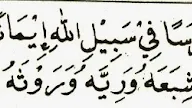 رَسًا فِيْ سَبِيْلِ اللهِ إِيْمَانً
شِبَعَهُ وَرِيَّهُ وَرَوْثَهُ